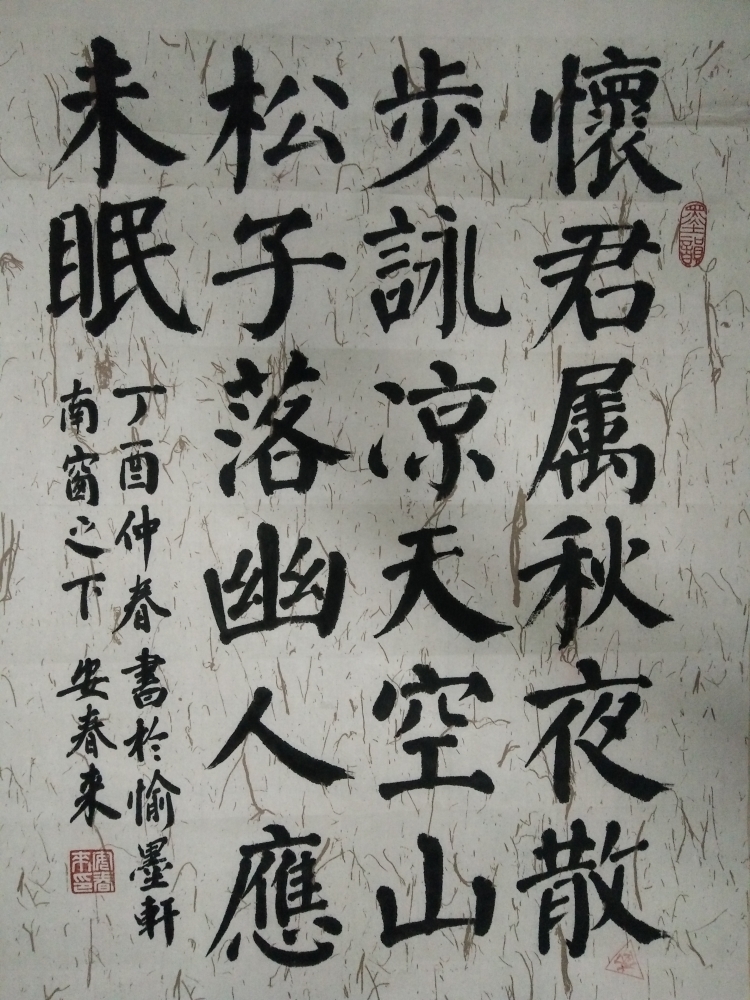 懷君属秋夜散
步詠凉天空山
松子落幽人應
未眠
丁酉仲春書於愉墨軒
南窗之下 安春来
安春来印